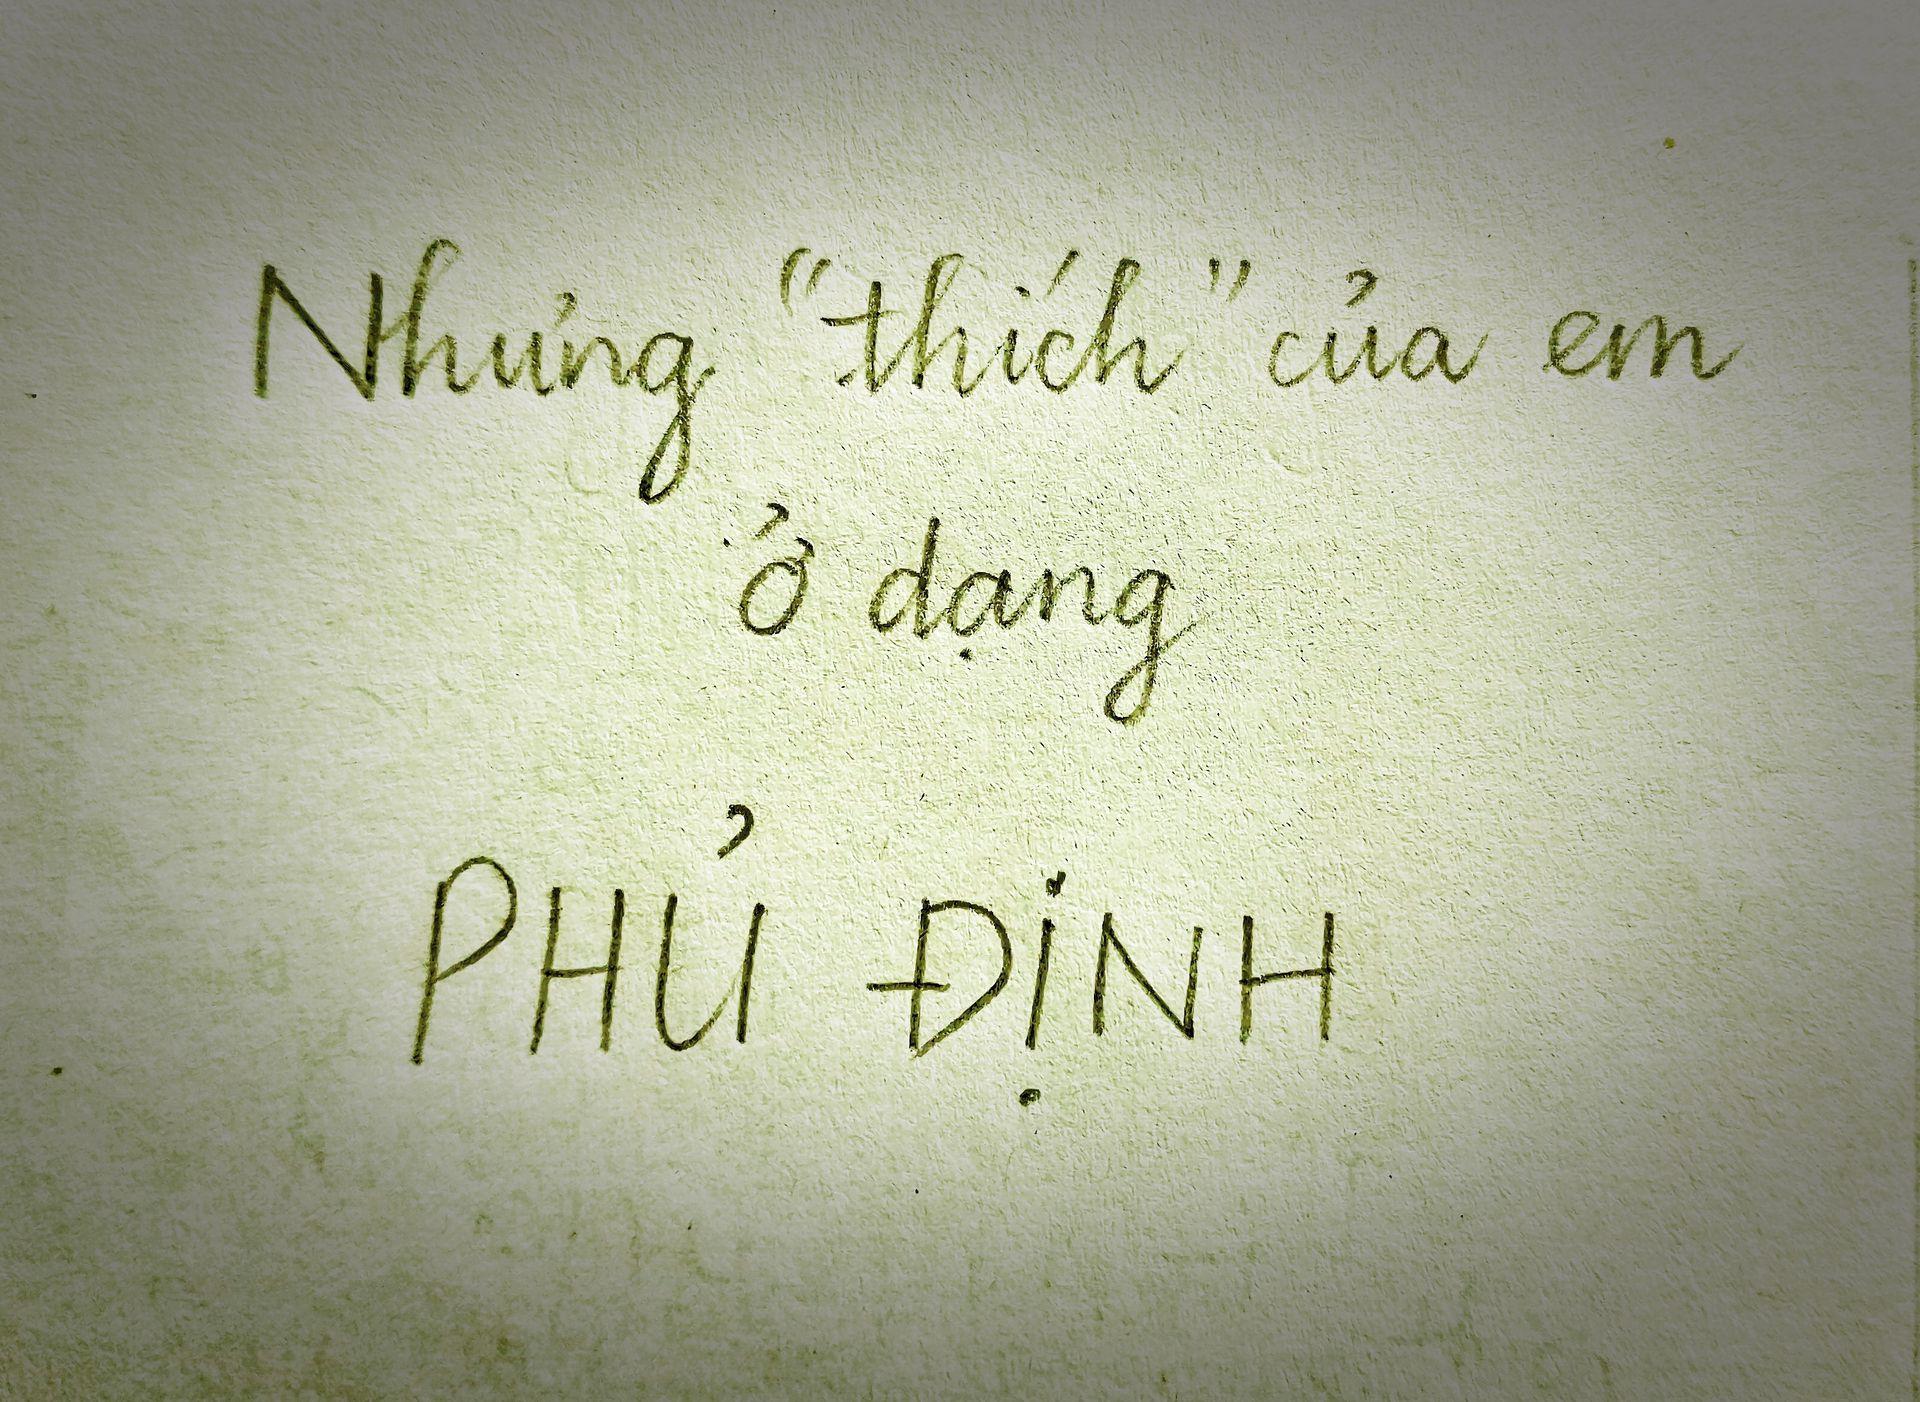 Nhưng "thích" của em
ở dạng
PHỦ ĐỊNH